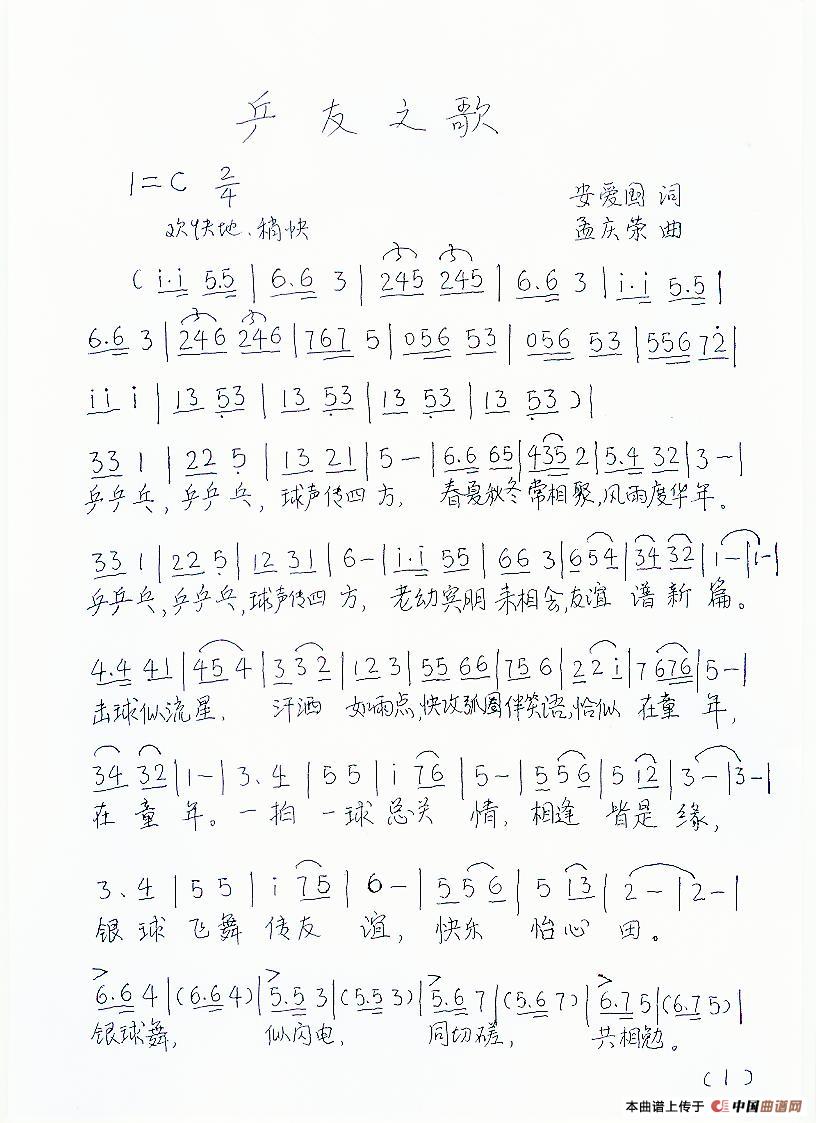 乒友之歌
1=C 2/4
安爱国 词
欢快地、稍快
孟庆荣 曲
( i·i 5.5 | 6.6 3 | 245 245 | 6.6 3 | i·i 5.5 |
6.6 3 | 246 246 | 767 5 | 056 53 | 056 53 | 556 72̇ |
i i i | 13 5̣3 | 13 5̣3 | 13 5̣3 | 13 5̣3 ) |
33 1 | 22 5̣ | 13 21 | 5 — | 6.6 65 | 435 2 | 5.4 32 | 3 — |
乒乒乓,乒乒乓,球声传四方, 春夏秋冬常相聚,风雨度华年。
33 1 | 22 5̣ | 12 31 | 6 — | i·i 55 | 66 3 | 654 | 34 32 | 1 — | 1 — |
乒乒乓,乒乒乓,球声传四方, 老幼宾朋来相会,友谊谱新篇。
4.4 41 | 45 4 | 3 32 | 12 3 | 55 66 | 75 6 | 2 2 i | 7 676 | 5 — |
击球似流星, 汗洒如雨点,快攻弧圈伴笑语,恰似在童年,
34 32 | 1 — | 3、4 | 5 5 | i 76 | 5 — | 5 5 6 | 5 i2 | 3 — | 3 — |
在童年。一拍一球总关情,相逢皆是缘,
3、4 | 5 5 | i 75 | 6 — | 5 5 6 | 5 i3 | 2 — | 2 — |
银球飞舞传友谊,快乐怡心田。
6.6 4 | (6.6 4) | 5.5 3 | (5.5 3) | 5.6 7 | (5.6 7) | 6.7 5 | (6.7 5) |
银球舞, 似闪电, 同切磋, 共相勉。
(1)
本曲谱上传于 中国曲谱网